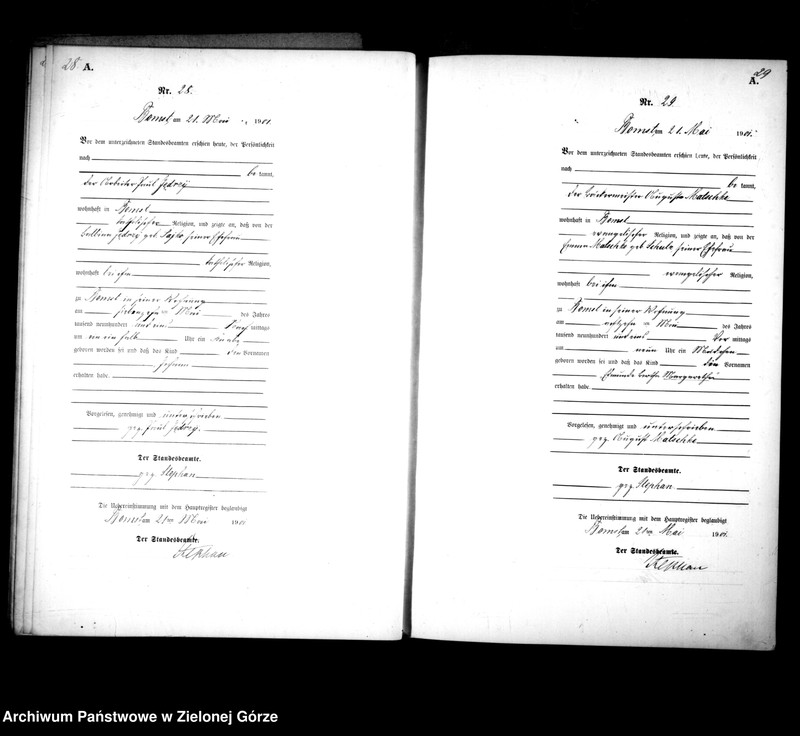 28
A.
Nr. 28.
Bomst am 21. Mai 1901.
Vor dem unterzeichneten Standesbeamten erschien heute, der Persönlichkeit
nach
be kannt,
der Arbeiter Paul
wohnhaft in Bomst
katholischer Religion, und zeigte an, daß von der
geb. seiner Ehefrau
katholischer Religion,
wohnhaft bei ihm
zu Bomst in seiner Wohnung
am ten Mai des Jahres
tausend neunhundert und eins Nach mittags
um ein halb Uhr ein Knabe
geboren worden sei und daß das Kind den Vornamen
Johann
erhalten habe.
Vorgelesen, genehmigt und unterschrieben
gez. Paul
Der Standesbeamte.
gez. Stephan
Die Uebereinstimmung mit dem Hauptregister beglaubigt
Bomst am 21ten Mai 1901
Der Standesbeamte.
Stephan
29
A.
Nr. 29.
Bomst am 21. Mai 1901.
Vor dem unterzeichneten Standesbeamten erschien heute, der Persönlichkeit
nach
be kannt,
der Bäckermeister August Matschke
wohnhaft in Bomst
evangelischer Religion, und zeigte an, daß von der
Emma Matschke geb. Schulz seiner Ehefrau
evangelischer Religion,
wohnhaft bei ihm
zu Bomst in seiner Wohnung
am achtzehn ten Mai des Jahres
tausend neunhundert und eins Vor mittags
um neun Uhr ein Mädchen
geboren worden sei und daß das Kind die Vornamen
Bertha Margarethe
erhalten habe.
Vorgelesen, genehmigt und unterschrieben
gez. August Matschke
Der Standesbeamte.
gez. Stephan
Die Uebereinstimmung mit dem Hauptregister beglaubigt
Bomst am 21ten Mai 1901.
Der Standesbeamte.
Stephan
Archiwum Państwowe w Zielonej Górze